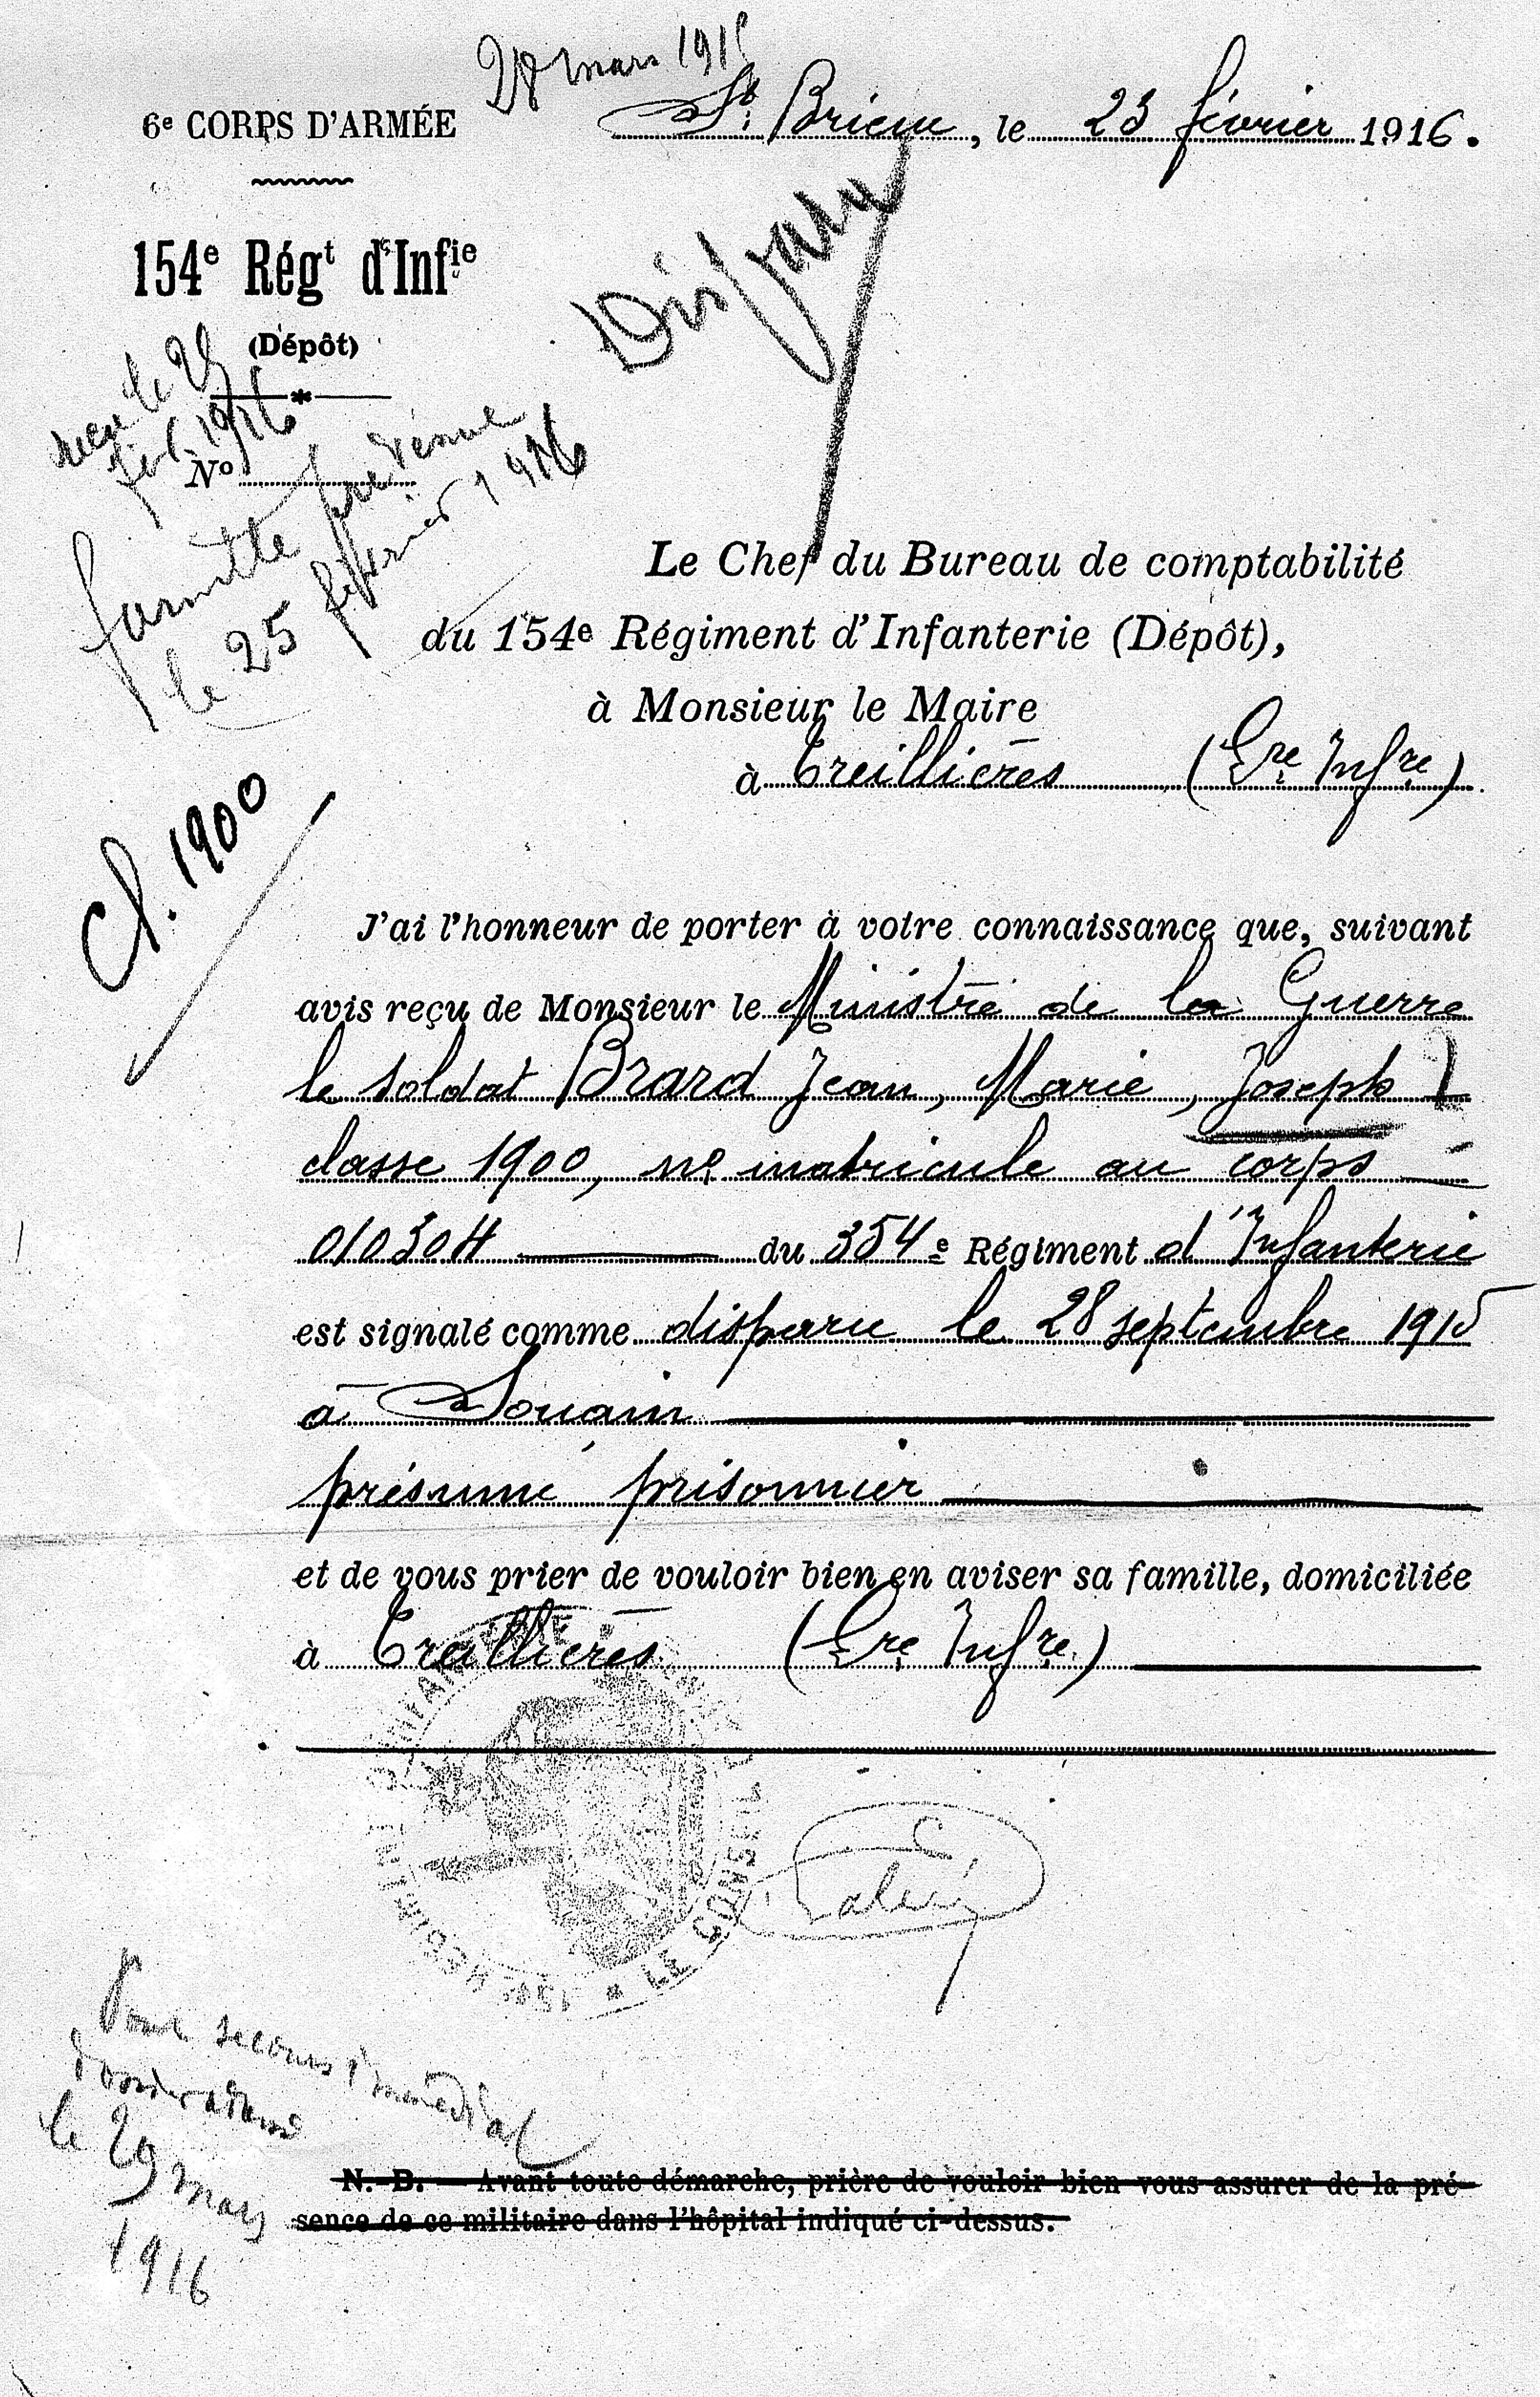 28 mars 191
6e CORPS D'ARMÉE
St Brieuc, le 23 février 1916.
154e Régt d'Infie
(Dépôt)
Disparu
reçu le 25
fév. 1916
No
famille prévenue
le 25 février 1916
Le Chef du Bureau de comptabilité
du 154e Régiment d'Infanterie (Dépôt),
à Monsieur le Maire
à Treillières (Lre Infre).
Cl. 1900
J'ai l'honneur de porter à votre connaissance que, suivant
avis reçu de Monsieur le Ministre de la Guerre
le soldat Brard Jean, Marie, Joseph
classe 1900, no matricule au corps
010304 du 354e Régiment d'Infanterie
est signalé comme disparu le 28 septembre 1915
à Souain
présumé prisonnier
et de vous prier de vouloir bien en aviser sa famille, domiciliée
à Treillières (Lre Infre)
LE CONSEIL
secours immédiat
le 29 mars
1916
N.-B. — Avant toute démarche, prière de vouloir bien vous assurer de la pré-
sence de ce militaire dans l'hôpital indiqué ci-dessus.